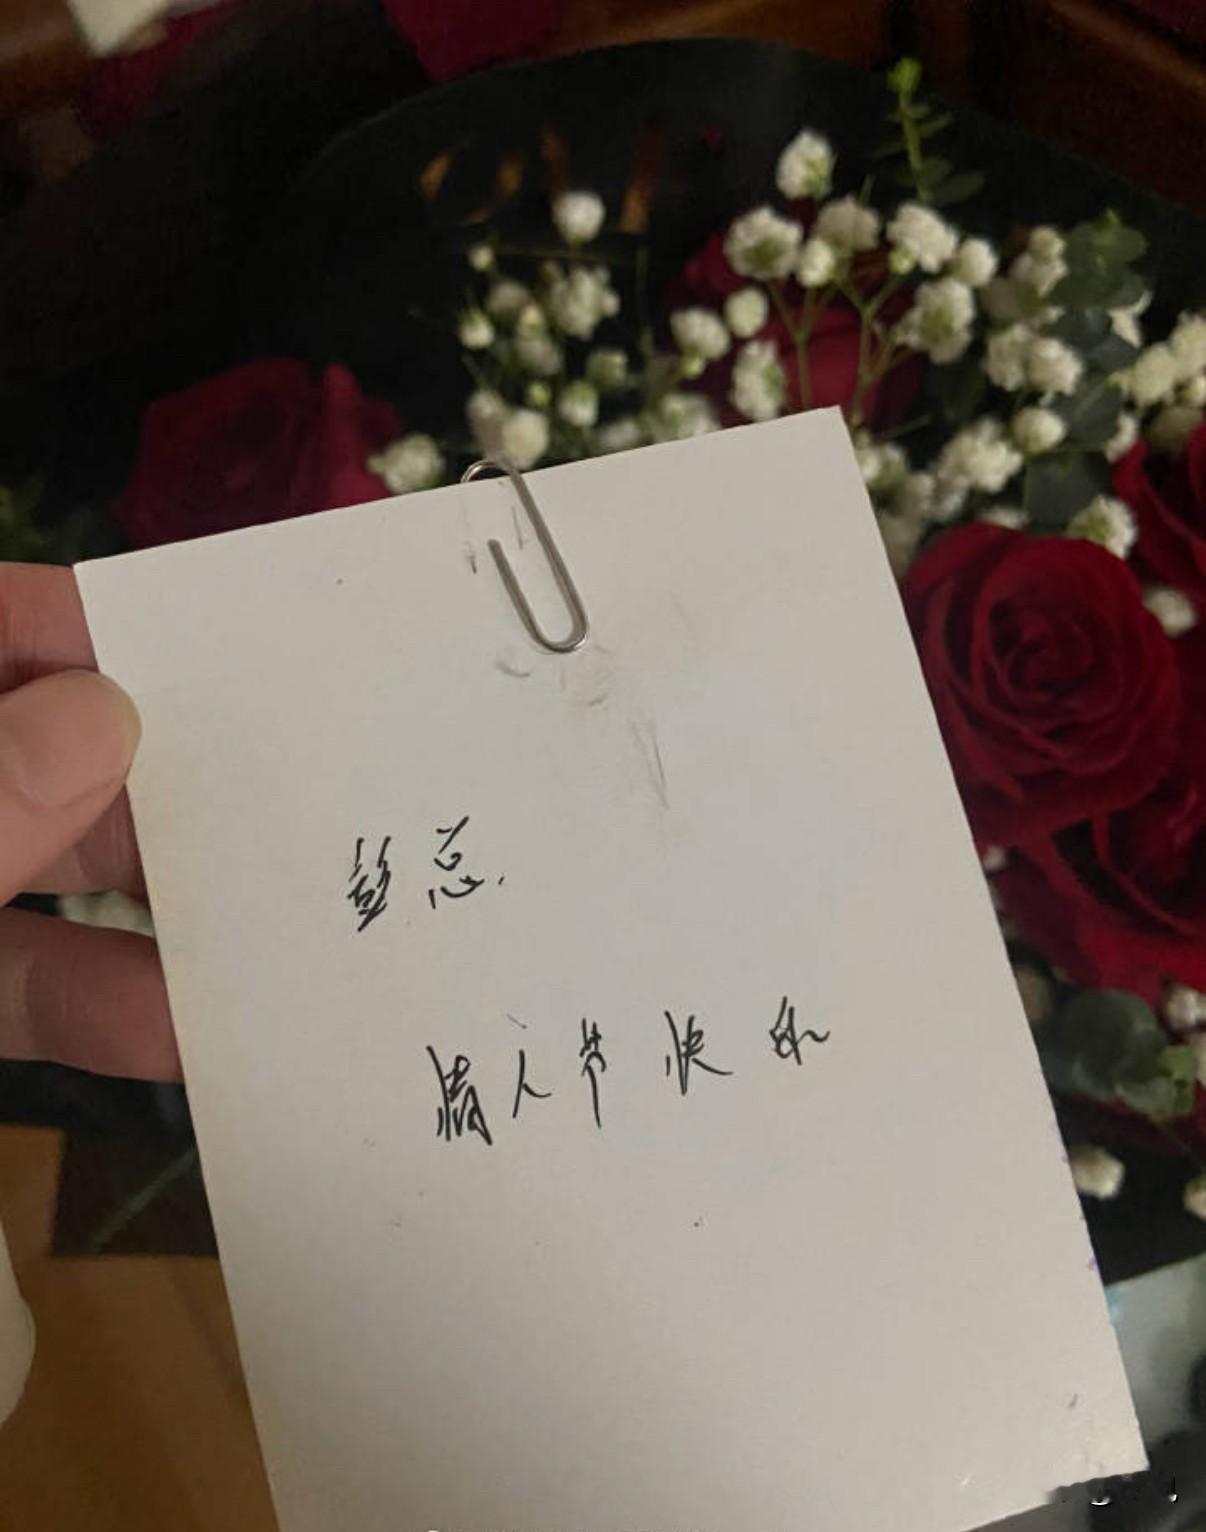 彭总,
情人节快乐